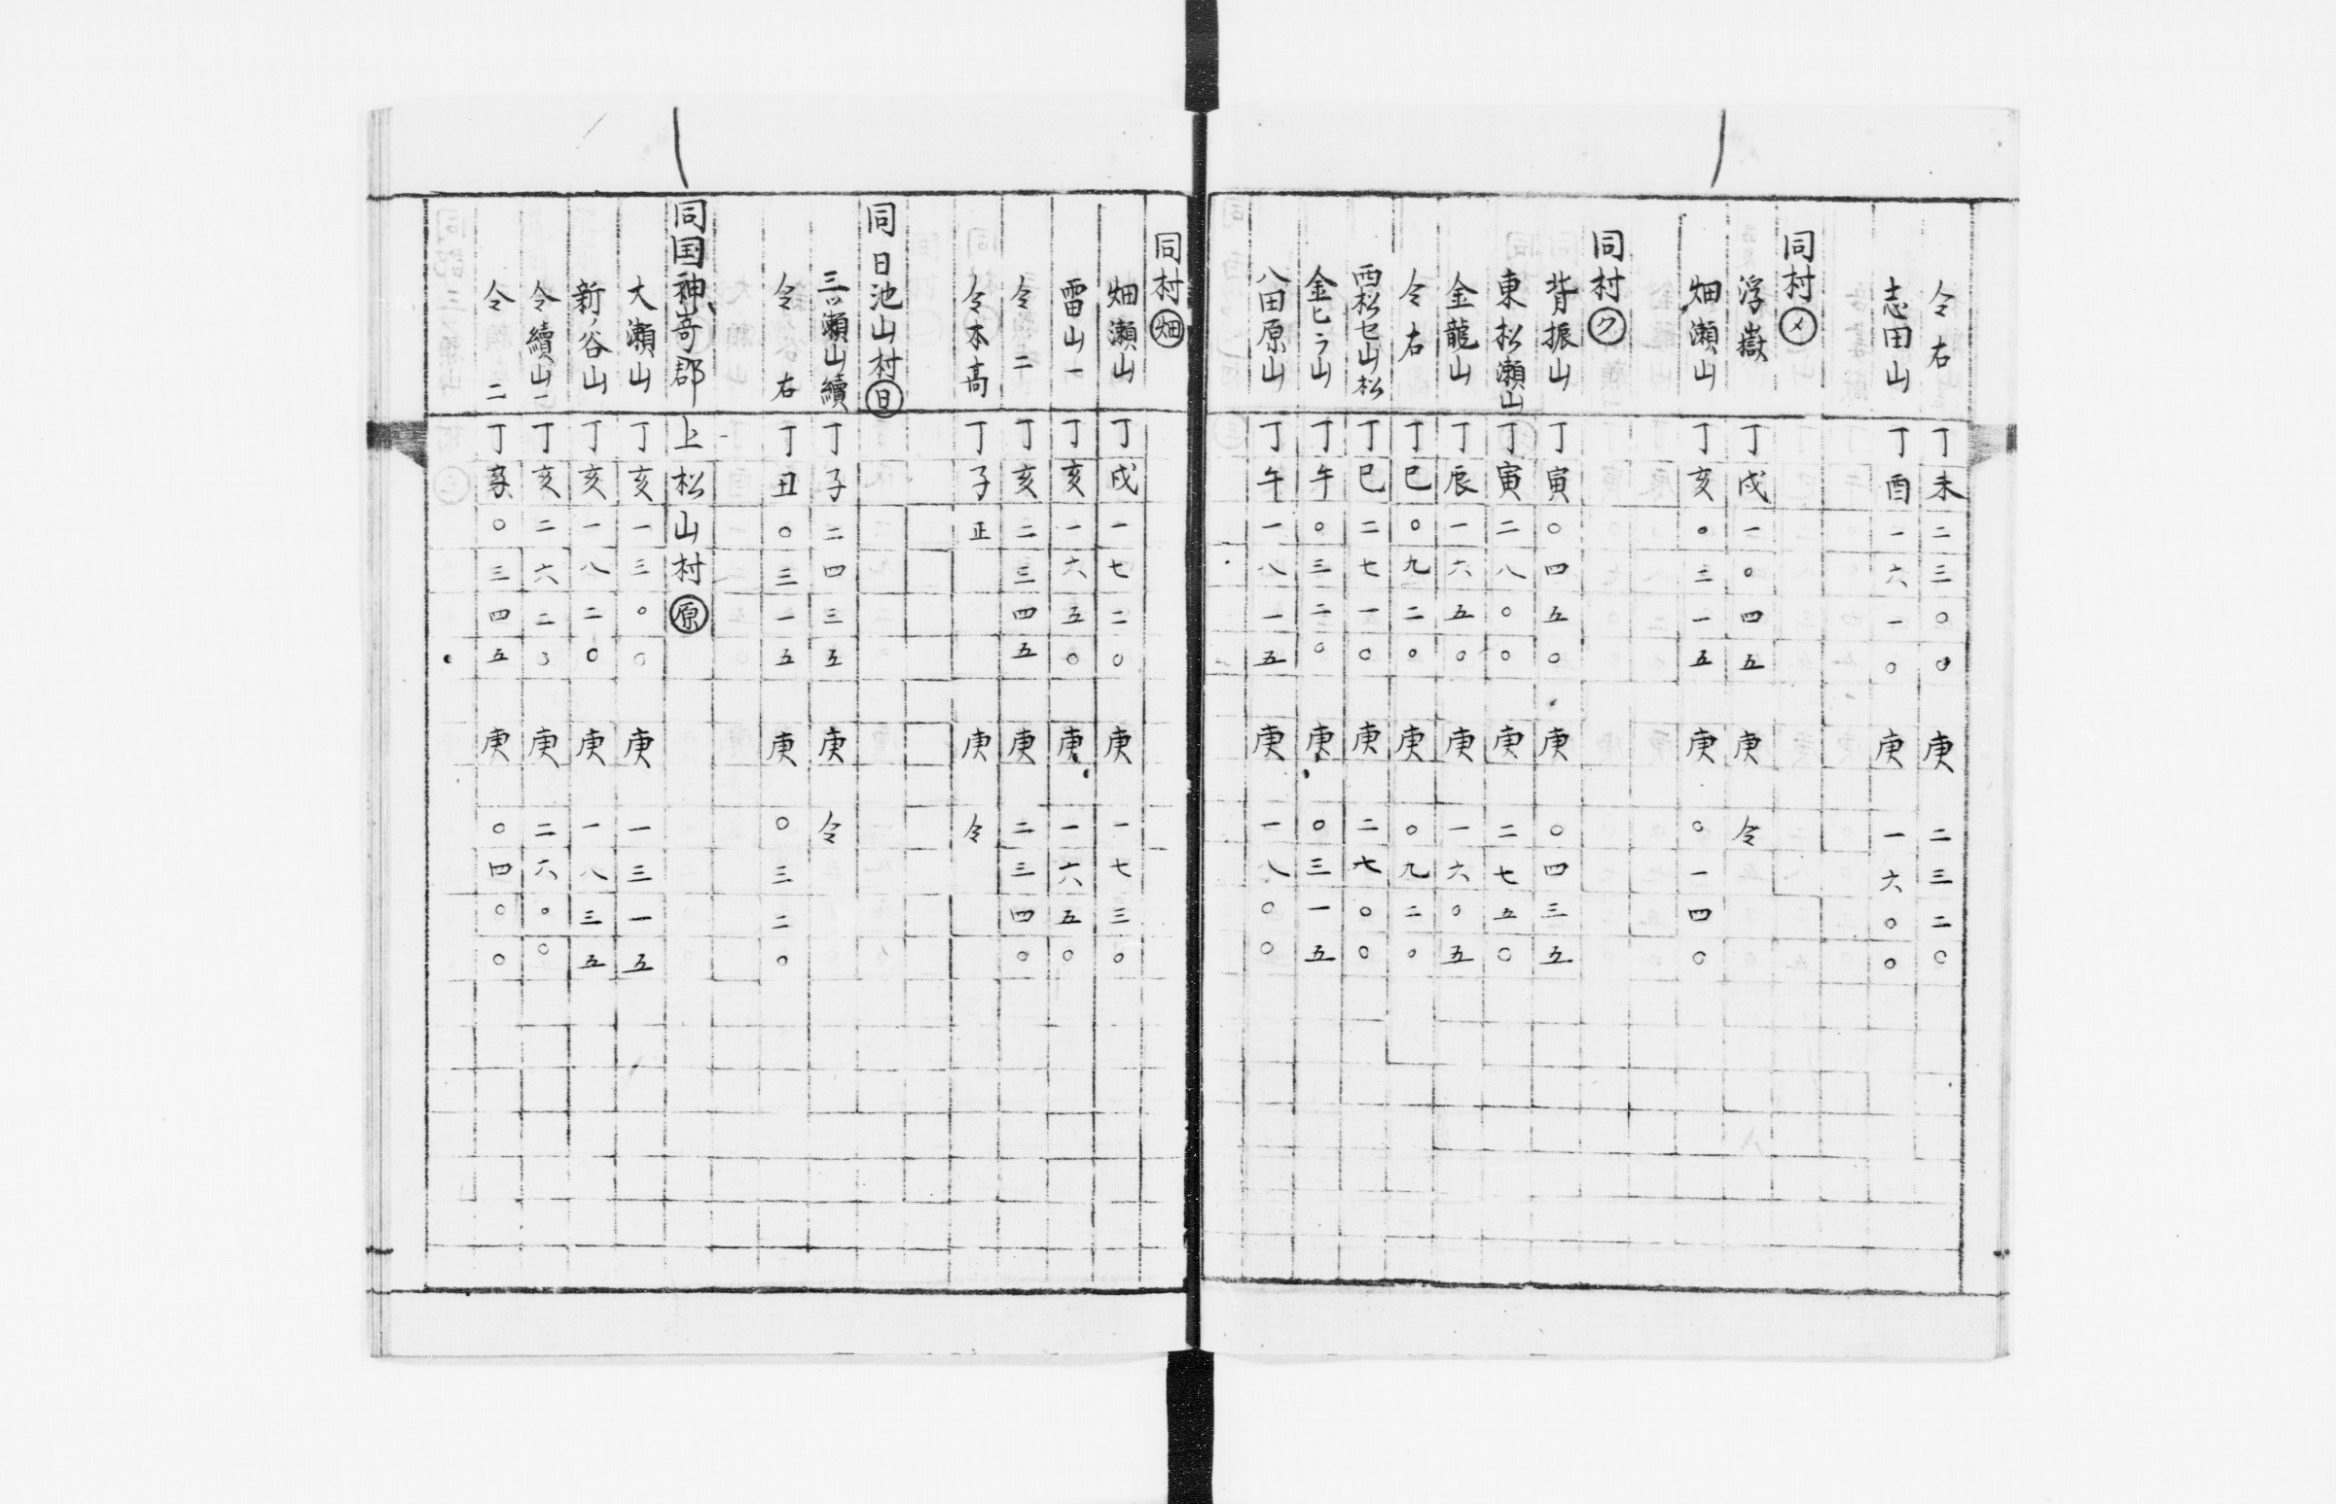 仝右 丁未二三〇〇 庚 二三二〇
志田山 丁酉一六一〇 庚 一六〇〇
同村㋱
浮嶽 丁戌一〇四五 庚 仝
畑瀬山 丁亥〇三一五 庚 〇一四〇
同村㋗
背振山 丁寅〇四五〇 庚 〇四三五
東松瀬山 丁寅二八〇〇 庚 二七五〇
金龍山 丁辰一六五〇 庚 一六〇五
仝右 丁巳〇九二〇 庚 〇九二〇
西松セ山松 丁巳二七一〇 庚 二七〇〇
金ヒラ山 丁午〇三二〇 庚 〇三一五
八田原山 丁午一八一五 庚 一八〇〇
同村畑
畑瀬山 丁戌一七二〇 庚 一七三〇
雷山一 丁亥一六五〇 庚 一六五〇
仝二 丁亥二三四五 庚 二三四〇
仝本高 丁子正 庚 仝
同日池山村㊐
三ツ瀬山續 丁子二四三五 庚 仝
仝右 丁丑〇三一五 庚 〇三二〇
同国神嵜郡上松山村原
大瀬山 丁亥一三〇〇 庚 一三一五
新ノ谷山 丁亥一八二〇 庚 一八三五
仝續山一 丁亥二六二〇 庚 二六〇〇
仝二 丁亥〇三四五 庚 〇四〇〇